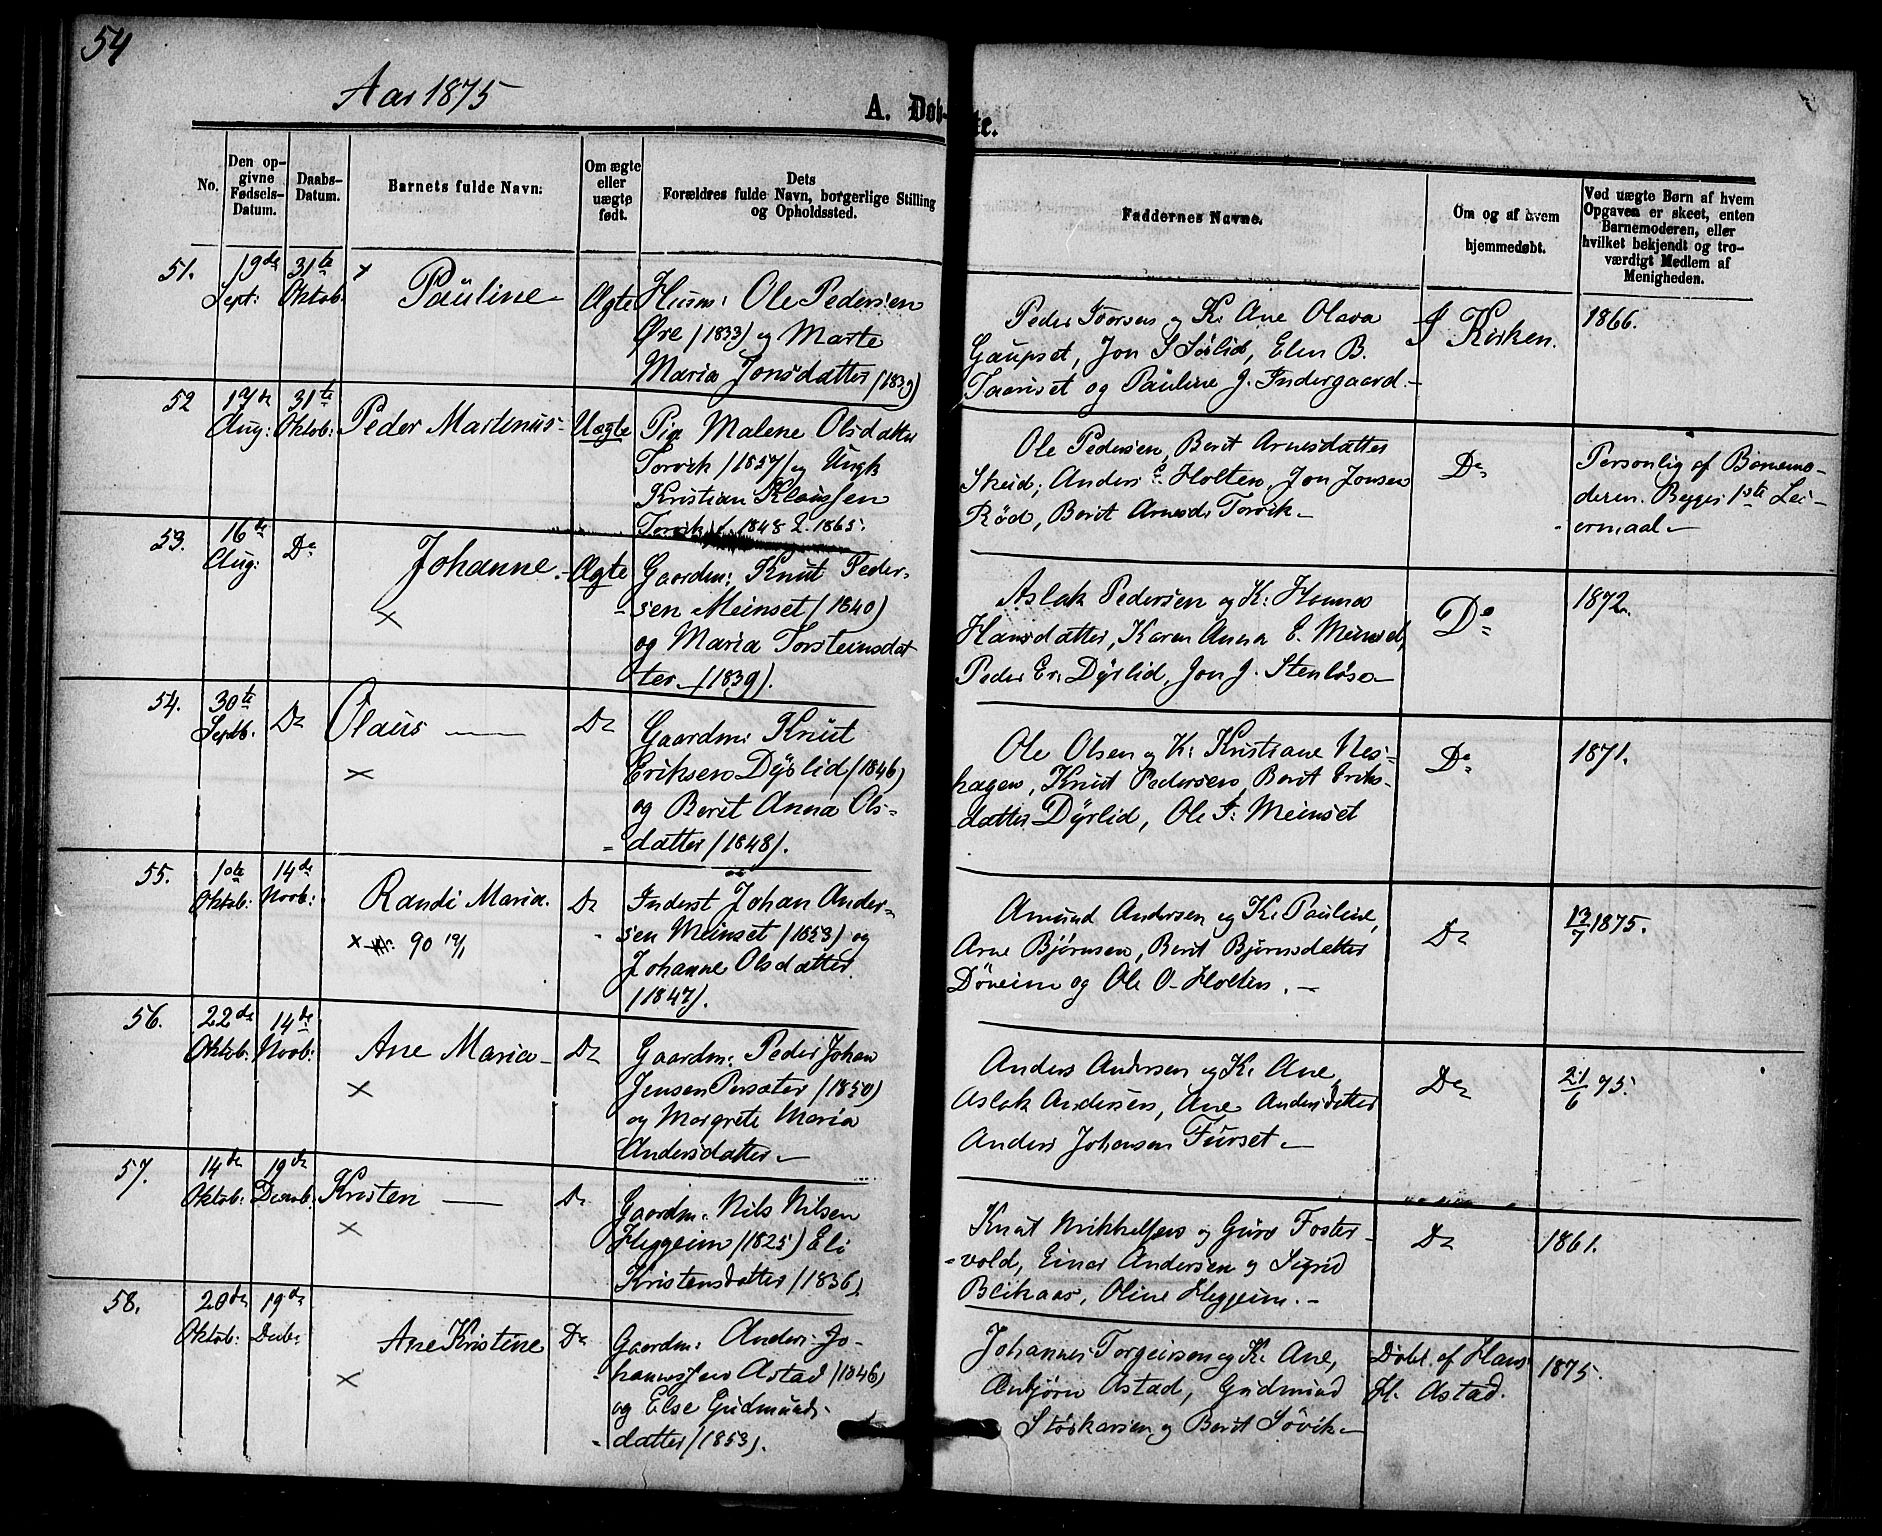 54
Aar 1875
A. Døb-
te.
No.
Den op-
givne
Fødsels-
Datum.
Daabs-
Datum.
Barnets fulde Navn:
Om ægte
eller
uægte
født.
Dets
Forældres fulde Navn, borgerlige Stilling
og Opholdssted.
Faddernes Navne.
Om og af hvem
hjemmedøbt.
Ved uægte Børn af hvem
Opgaven er skeet, enten
Barnemoderen, eller
hvilket bekjendt og tro-
værdigt Medlem af
Menigheden.
51.
19de
Sept:
31te
Oktob:
Pauline
Ægte
Husm: Ole Pedersen
Øre (1833) og Marte
Maria Jonsdatter (1839)
Peder Iversen og K. Ane Olava
Gaupset, Jon S Sølid, Elen B.
og Pauline J. Indergaard
I Kirken.
1866.
52
17de
Aug:
31te
Oktob:
Peder Martinus
Uægte
Pig Malene Olsdatter
Torvik (1857) og Ungk
Kristian Klaussen
Torvik f. 1848 2. 1865.
Ole Pedersen, Berit Arnesdatter
Skeid, Anders E. Holten, Jon Jonsen
Rød, Berit Arnesd. Torvik
Do
Personlig af Barnemo-
deren. Begges 1ste Lei-
ermaal
53.
16te
Aug:
Do
Johanne
×
Ægte
Gaardm: Knut Peder-
sen Meinset (1840)
og Maria Torsteinsdat
ter (1839).
Aslak Pedersen og K: Hanna
Hansdatter, Karen Anna E. Meinset,
Peder Er. Dyrlid, Jon J. Stenløse
Do
1872
54.
30te
Septb.
Do
Olaus
×
Do
Gaardm: Knut
Eriksen Dyrlid (1846)
og Berit Anna Ols-
datter (1848).
Ole Olsen og K: Kristiane Nes-
hagen, Knut Pedersen, Berit Eriks-
datter Dyrlid, Ole T: Meinset
Do
1871.
55.
1ste
Oktob:
14de
Novb:
Randi Maria.
× 90 19/1
Do
Inderst Johan Ander-
sen Meinset (1853) og
Johanne Olsdatter
(1847).
Amund Andersen og K. Pauline,
Arne Bjørnsen, Berit Bjørnsdatter
Døveim og Ole O. Holten.
Do
13/7 1875.
56.
22de
Oktob:
14de
Novb:
Ane Maria
×
Do
Gaardm: Peder Johan
Jensen Persæter (1850)
og Margrete Maria
Andersdatter
Anders Andersen og K. Ane,
Aslak Andersen, Ane Andersdatter
Anders Johansen Furset
Do
21/6 75.
57.
14de
Oktob:
19de
Decmb:
Kristen
×
Do
Gaardm: Nils Nilsen
Heggeim (1825) Eli
Kristensdatter (1836)
Knut Mikkelsen og Guro Foster-
vold, Einar Andersen og Sigrid
Blikaas, Oline Heggeim.
Do
1861.
58.
20de
Oktob:
19de
Decb:
Ane Kristine
×
Do
Gaardm: Anders Jo-
hannessen Astad (1846)
og Else Gudmunds-
datter (1853).
Johannes Torgeirsen og K. Ane,
Anbjørn Astad, Gudmund
Størkersen og Berit Søvik
Døbt af Hans
H. Astad.
1875.